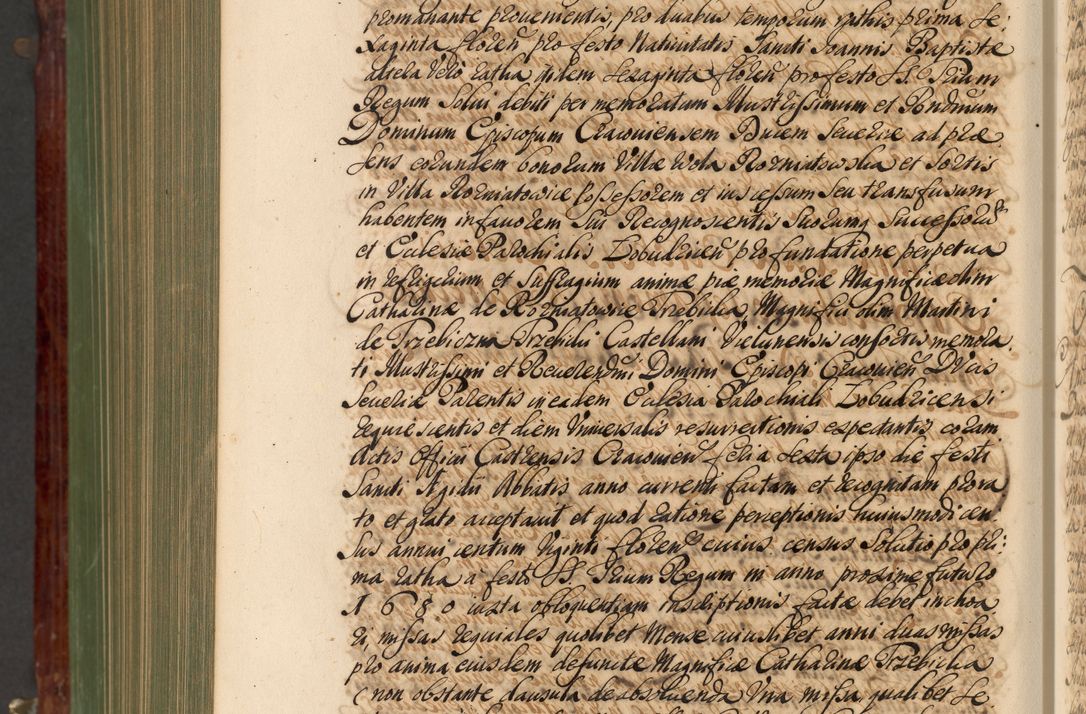 promanante provenientis, pro duabus temporum rathis prima Se:
xaginta floren̄ pro festo Nativitatis Sancti Joannis Baptistæ
altera verò ratha itidem sexaginta floren̄ pro festo SS. Trium
Regum solui debiti per memoratum Illustrissimum et Rndmum
Dominum Episcopum Cracouiensem Ducem Seueriæ ad præ
sens eorundem bonorum Villæ Wola Rozniatowska et Sortis
in Villa Rozniatowice possessorem et ius cessum seu transfusum
habentem in fauorem sui Recognoscentis suorumq Successorū
et Ecclesiæ Parochialis Dobudzicen̄ pro fundatione perpetua
in refrigerium et suffragium animæ piæ memoriæ Magnificæ olim
Catharinæ de Rozniatowice Trzebicka, Magnifici olim Martini
de Trzebiczna Trzebicki Castellani Vielunensis consortis memora
ti Illustrissimi et Reuerendmi Domini Episcopi Cracouien̄ Ducis
Seueriæ Parentis in eadem Ecclesia Parochiali Dobudzicensi
requiescentis et diem Vniuersalis resurrectionis expectantis coram
Actis Officii Castrensis Cracouien̄ feria sexta ipso die festi
Sancti Ægidii Abbatis anno currenti factam et recognitam prora
to et grato acceptauit et quod ratione perceptionis huiusmodi cen
sus annui centum Viginti floren̄ cuius census Solutio pro pri:
ma ratha à festo SS. Trium Regum in anno proxime futuro
1680 iuxta obloquentiam inscriptionis factæ debet inchoa
ri, missas requiales quolibet Mense cuiuslibet anni duas missas
pro anima eiusdem defunctæ Magnificæ Catharinæ Trzebicka
(non obstante clausula de absoluenda Vna missa qualibet Se